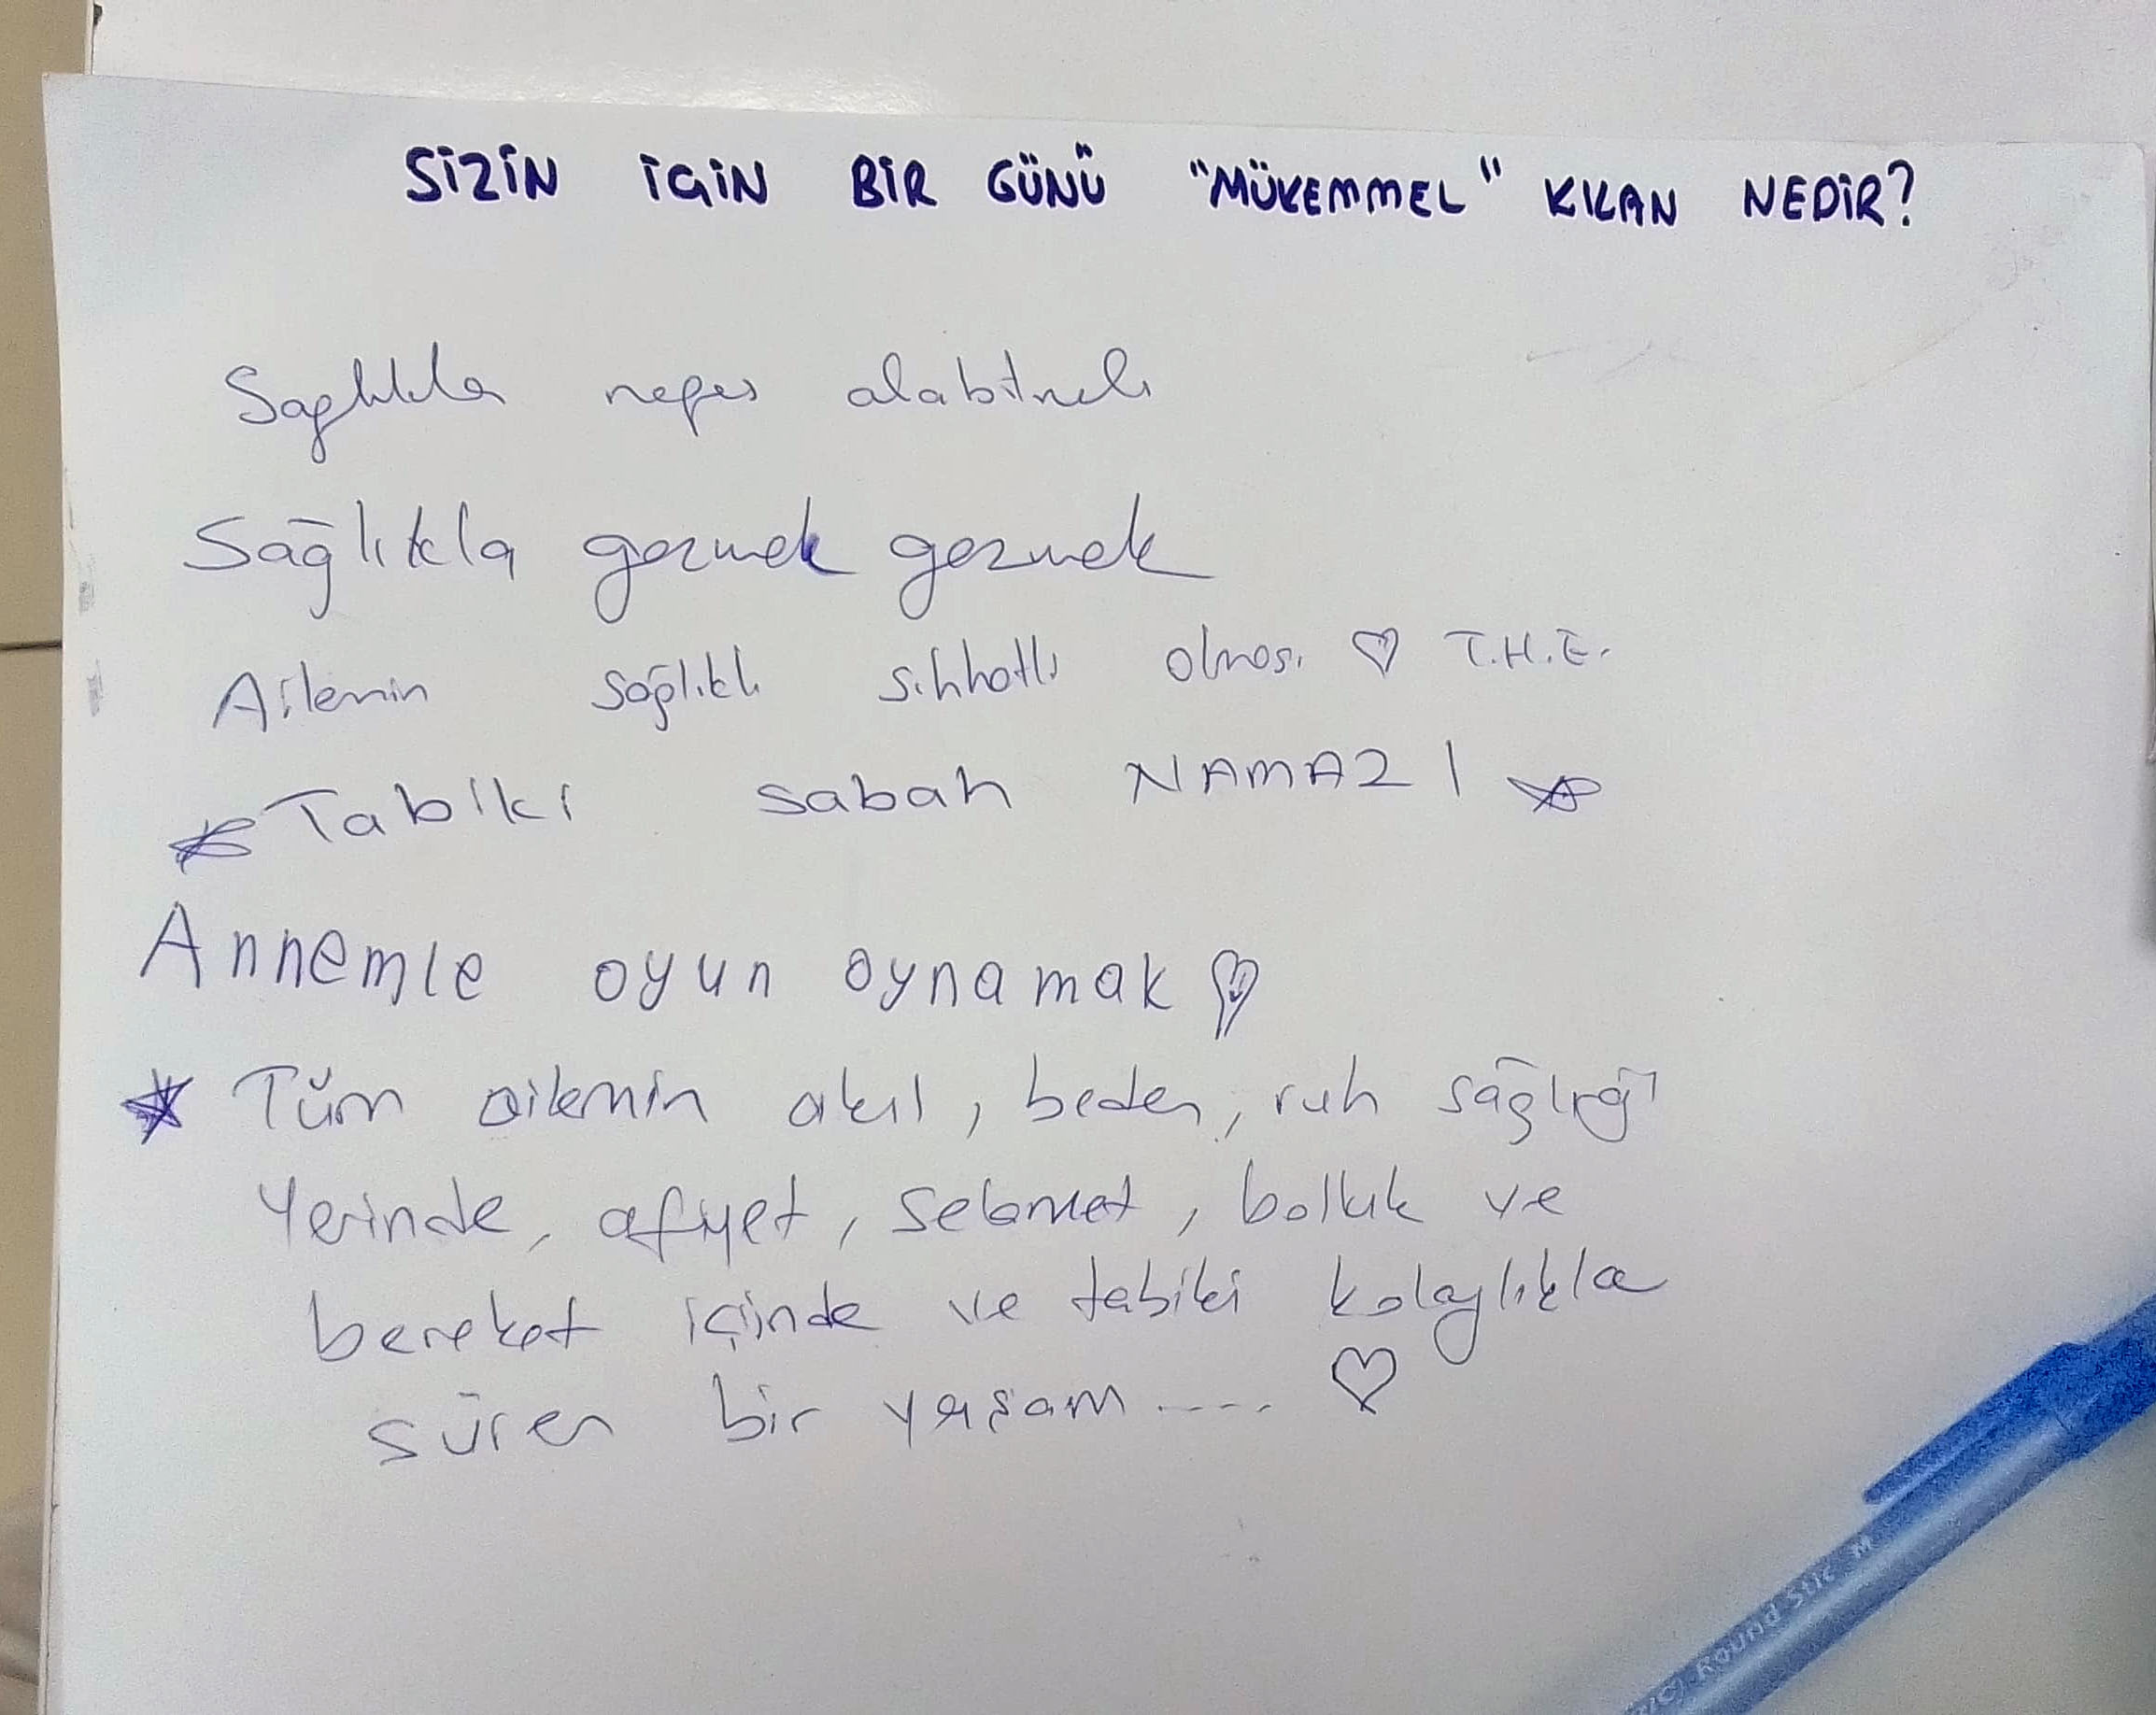 SİZİN İÇİN BİR GÜNÜ "MÜKEMMEL" KILAN NEDİR?
Sağlıkla nefes alabilmek
Sağlıkla gezmek gezmek
Ailemin sağlıklı sıhhatli olması ♡ T.H.E.
☆ Tabiki sabah NAMAZI ☆
Annemle oyun oynamak ♡
☆ Tüm ailemin akıl, beden, ruh sağlığı
Yerinde, afiyet, selamet, bolluk ve
bereket içinde ve tabiki kolaylıkla
süren bir yaşam..... ♡
Round Stic M